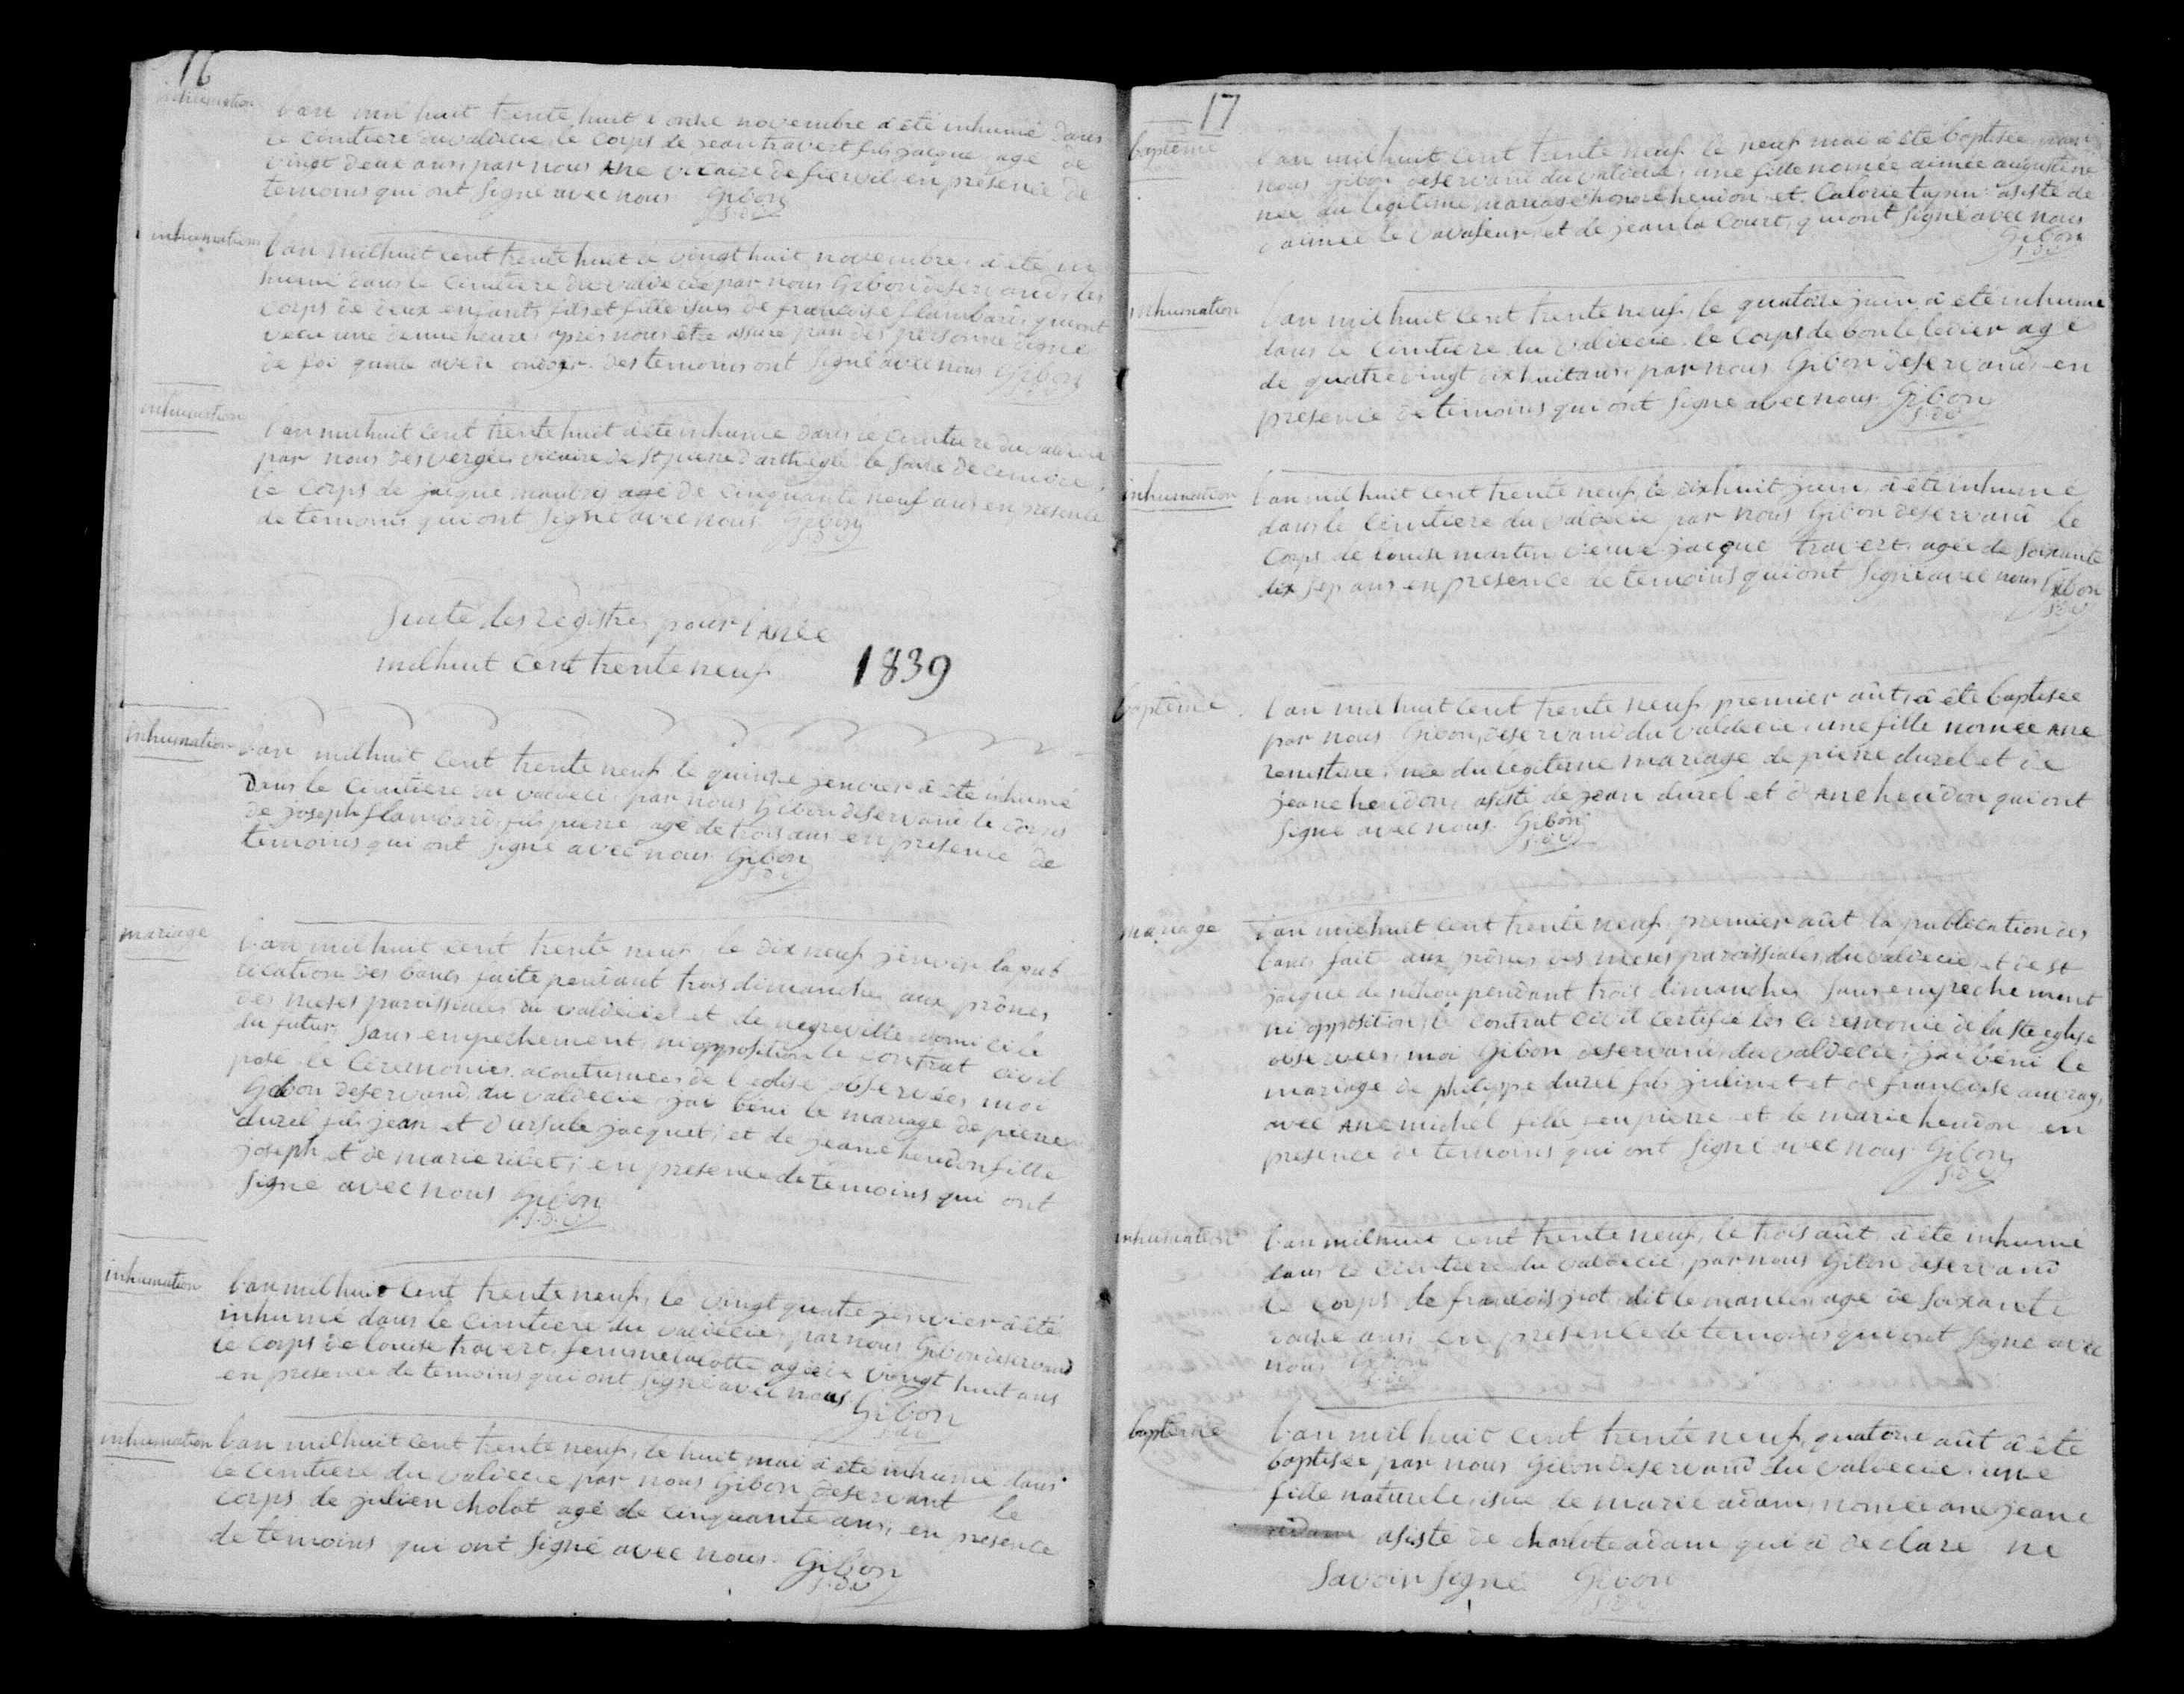 16
inhumation
l'an mil huit trente huit l onse novembre a été inhumé dans
le cimitiere du valdecie le corps de jean travert fils jacque agé de
vingt deux ans, par nous Ane vicaire de fiervil en présence de
temoins qui ont signé avec nous Gibon
inhumations
l'an mil huit cent trente huit le vingt huit novembre a été in
humé dans le cimitiere du valdecie par nous Gibon deservand, les
corps de deux enfants, fils et fille isus de francoise flambard, qui ont
vecu une demie heure, après nous être assuré par des personne digne
de foi des temoins ont signé avec nous Gibon
inhumation
l'an mil huit cent trente huit a été inhumé dans le cimitiere du valdecie
par nous desvergée vicaire de St pierre d'artheglé le decembre
le corps de jacque agé de cinquante neuf ans en presence
de temoins qui ont signé avec nous Gibon
Suite des registres pour l'Anee
mil huit cent trente neuf 1839
inhumation
l'an mil huit cent trente neuf le quinse jenvier a été inhumé
Dans le cimitiere du valdecie par nous Gibon deservand le corps
de joseph flambard, fils pierre agé de trois ans en presence de
temoins qui ont signé avec nous Gibon
mariage
l'an mil huit cent trente neuf, le dix neuf jenvier la pub
lication des bancs faite pendant trois dimanches aux prônes
des meses paroissiales du valdecie et de negreville domicile
du futur, sans empechement, ni opposition le contrat civil
posé le ceremonies acoutumées de l'eglise observées moi
Gibon deservand du valdecie j'ai béni le mariage de pierre
durel fils jean et d'ursule jacquet, et de jeane heudon fille
joseph et de marie ribet; en presence de temoins qui ont
signé avec nous Gibon
inhumation
l'an mil huit cent trente neuf, le vingt quatre jenvier a été
inhumé dans le cimitiere du valdecie, par nous Gibon deservand
le corps de louise travert, femme lacotte agée de vingt huit ans
en presence de temoins qui ont signé avec nous
Gibon
inhumation
l'an mil huit cent trente neuf, le huit mai a été inhumé dans
le cimitiere du valdecie par nous Gibon deservant le
corps de julien cholot agé de cinquante ans, en presence
de temoins qui ont signé avec nous. Gibon
17
baptême
l'an mil huit cent trente neuf le neuf mai a été baptisée par
nous Gibon deservand du valdecie, une fille nomée aimée augustine
née du legitime mariage honoré heudon et Calorie tapin asisté de
aimée le vavaseur, et de jean la Court, qui ont signé avec nous
Gibon
inhumation
l'an mil huit cent trente neuf, le quatorse juin a été inhumé
dans le cimitiere du valdecie le corps de bon le levier agé
de quatre vingt dix huit ans, par nous Gibon deservand en
presence de temoins qui ont signé avec nous Gibon
inhumation
l'an mil huit cent trente neuf, le dix huit juin, a été inhumé
dans le cimitiere du valdecie par nous Gibon deservand le
corps de louise martin veuve jacque travert agée de soixante
dix sep ans en presence de temoins qui ont signé avec nous Gibon
baptême
l'an mil huit cent trente neuf, premier aût, a été baptisée
par nous Gibon, deservand du valdecie, une fille nomée Ane
ernestine, née du legitime mariage de pierre durel et de
jeane heudon, asisté de jean durel et d'Ane heudon qui ont
signé avec nous Gibon
mariage
l'an mil huit cent trente neuf, premier aût la publication des
bancs fait aux prônes des meses paroissiales du valdecie et de st
jacque de néhou pendant trois dimanches sans empechement
ni opposition, le contrat civil certifié les ceremonie de la ste eglise
observées, moi Gibon deservand du valdecie j'ai béni le
mariage de philippe durel fils julien et et de francoise auvray,
avec Ane michel fille feu pierre et de marie heudon en
presence de temoins qui ont signé avec nous Gibon
inhumation
l'an mil huit cent trente neuf, le trois aût, a été inhumé
dans le cimitiere du valdecie par nous Gibon deservand
le corps de francois dit agé de soixante
ans, en presence de temoins qui ont signé avec
nous Gibon
baptême
l'an mil huit cent trente neuf, quatorse aût a été
baptisée par nous Gibon deservand du valdecie une
fille naturele, isue de marie adam, nomée ane jeane
asisté de charlote adam qui a declaré ne
savoir signé Gibon